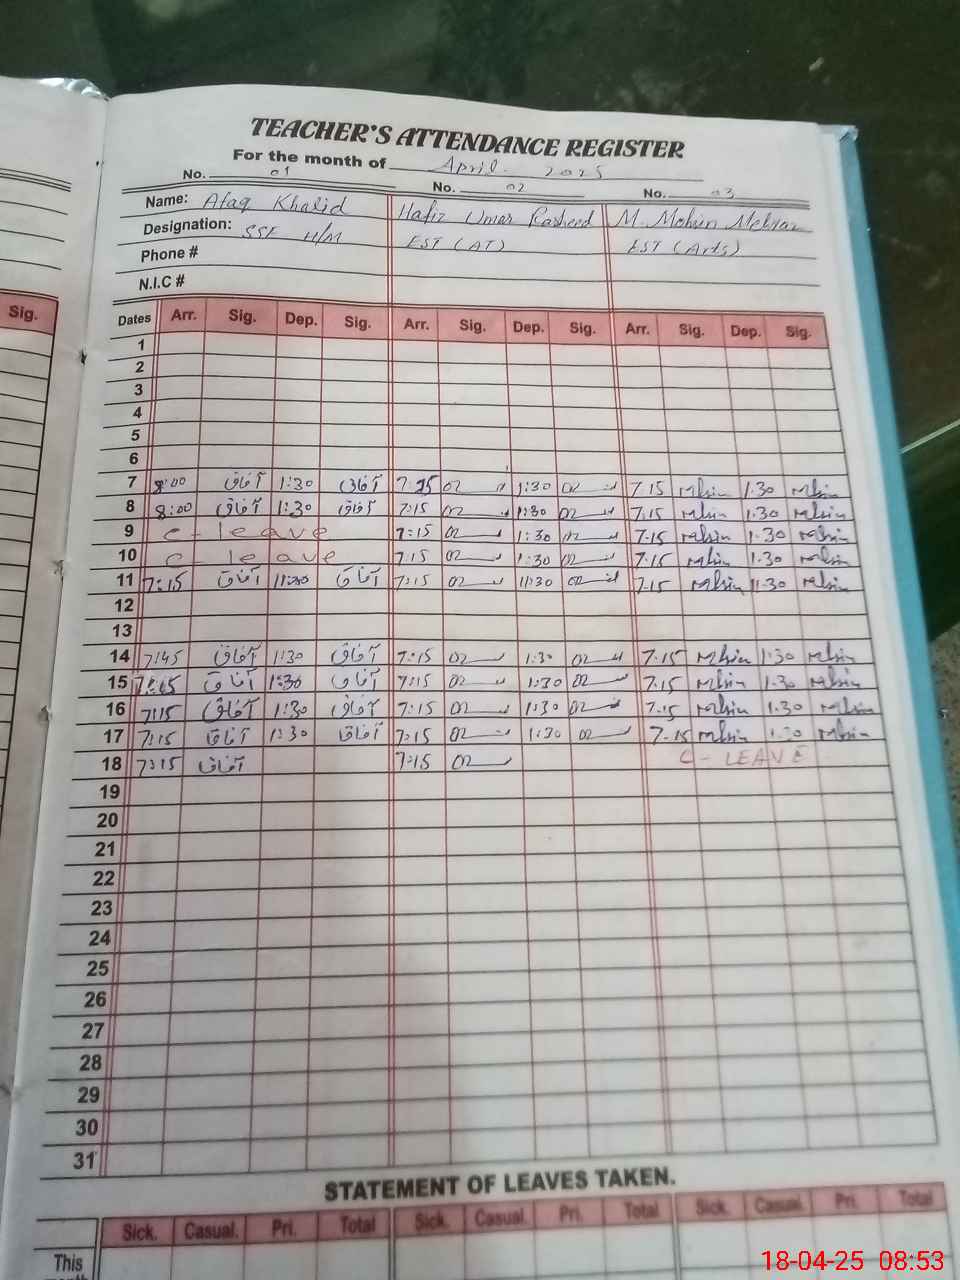 TEACHER'S ATTENDANCE REGISTER
For the month of April. 2025
No. 01 No. 02 No. 03
Name: Afaq Khalid Hafiz Umar Rasheed M. Mohsin
Designation: SSE H/M EST (AT) EST (Arts)
Phone #
N.I.C #
Sig.
Dates Arr. Sig. Dep. Sig. Arr. Sig. Dep. Sig. Arr. Sig. Dep. Sig.
1
2
3
4
5
6
7 8:00 آفاق 1:30 آفاق 7:15 1:30 7.15 Mhsin 1.30 Mhsin
8 8:00 آفاق 1:30 آفاق 7:15 1:30 7.15 Mhsin 1.30 Mhsin
9 c-leave 7:15 1:30 7.15 Mhsin 1.30 Mhsin
10 c-leave 7:15 1:30 7.15 Mhsin 1.30 Mhsin
11 7:15 آفاق 11:30 آفاق 7:15 11:30 7.15 Mhsin 11.30 Mhsin
12
13
14 7:45 آفاق 1:30 آفاق 7:15 1:30 7.15 Mhsin 1:30 Mhsin
15 7:15 آفاق 1:30 آفاق 7:15 1:30 7.15 Mhsin 1.30 Mhsin
16 7:15 آفاق 1:30 آفاق 7:15 1:30 7.15 Mhsin 1.30 Mhsin
17 7:15 آفاق 1:30 آفاق 7:15 1:30 7.15 Mhsin 1.30 Mhsin
18 7:15 آفاق 7:15 C-LEAVE
19
20
21
22
23
24
25
26
27
28
29
30
31
STATEMENT OF LEAVES TAKEN.
Sick. Casual. Pri. Total Sick. Casual. Pri. Total Sick. Casual. Pri. Total
This
month
18-04-25 08:53